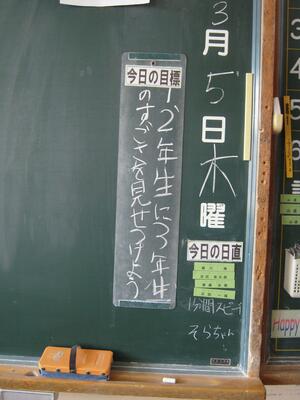 3月5日木曜
今日の日直
1分間スピーチ
そらちゃん
今日の目標
1、2年生に3年生
のすごさを見せつけよう
Happy